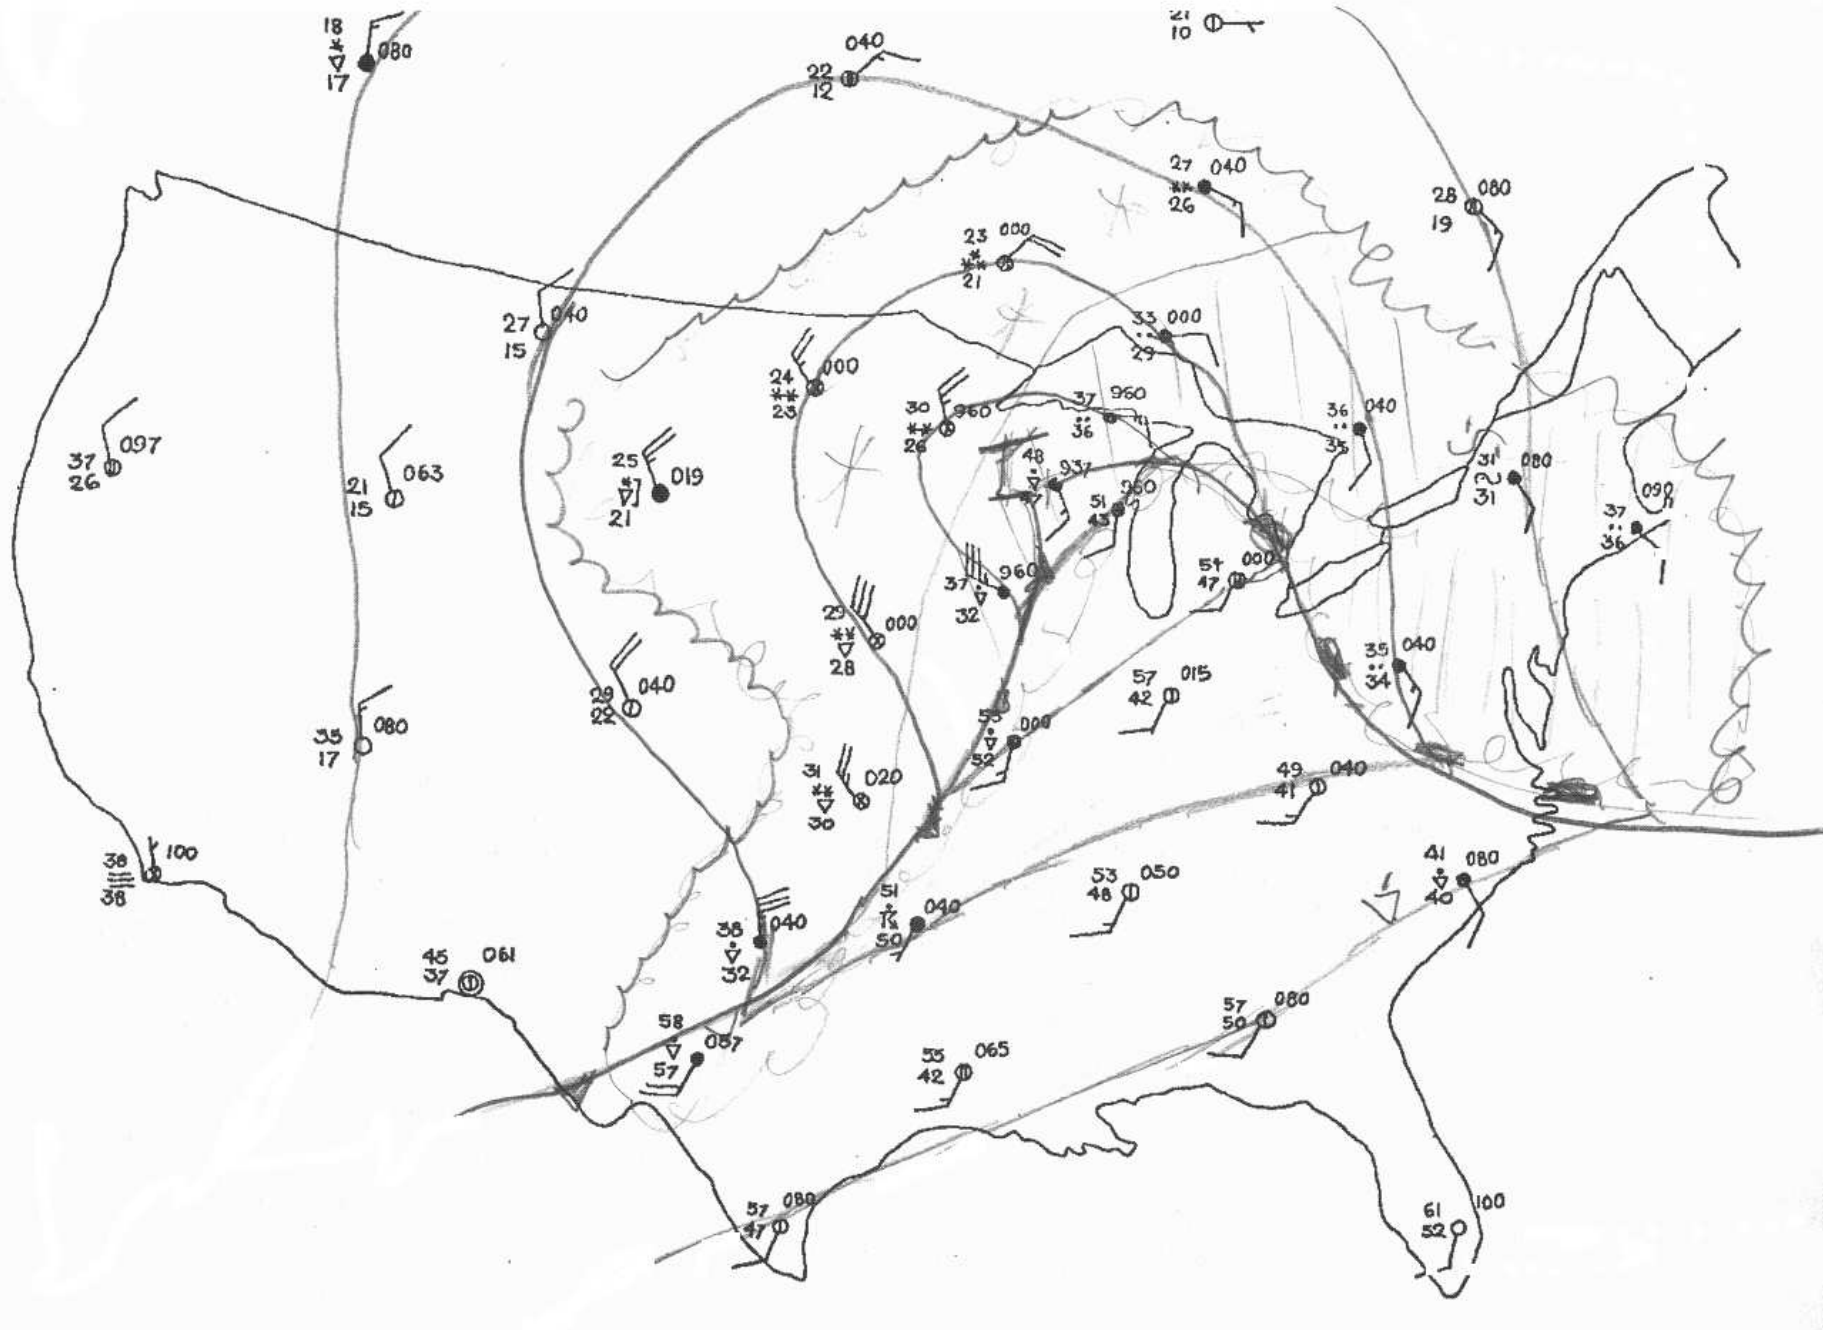 18
080
17
040
22
12
21
10
27
040
26
28
080
19
23
000
21
27
040
15
33
000
29
24
000
23
30
960
26
37
960
36
36
040
35
37
097
26
21
063
15
25
019
21
48
937
47
51
960
43
31
080
31
090
37
36
37
960
32
54
000
47
29
000
28
29
040
22
57
015
42
35
040
34
33
080
17
55
000
52
31
020
30
49
040
41
38
100
38
53
050
48
41
080
40
51
040
50
38
040
32
45
061
37
58
057
57
57
080
50
55
065
42
57
080
47
61
100
52